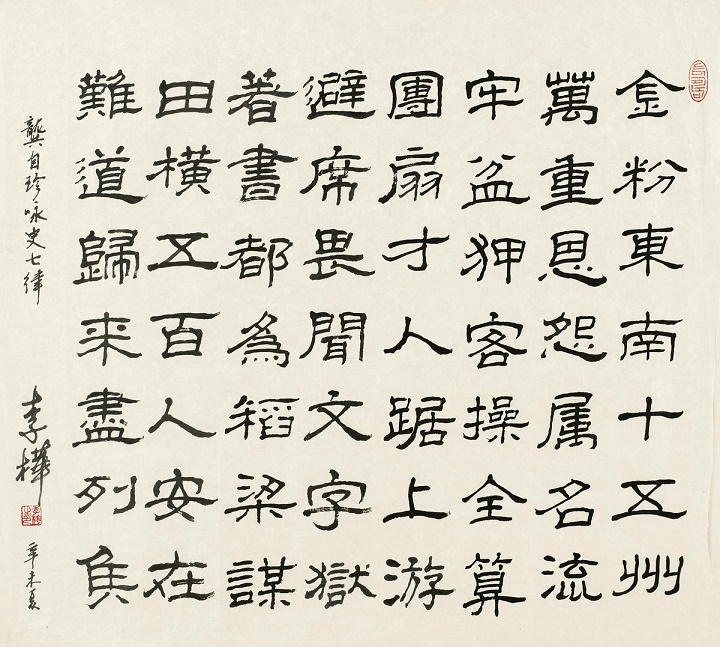 金粉東南十五州
萬重恩怨属名流
牢盆狎客操全算
團扇才人踞上游
避席畏聞文字獄
著書都為稻梁謀
田橫五百人安在
難道歸来盡列侯
龔自珍咏史七律
李樺
辛未夏